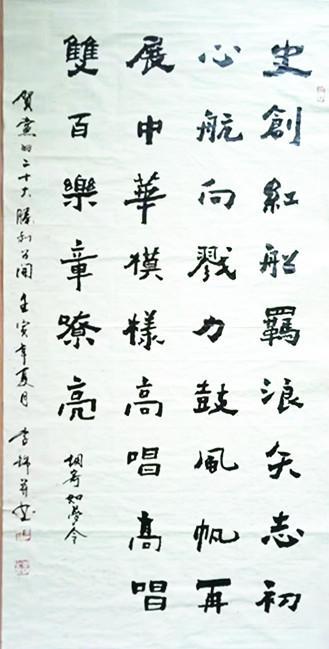 史創紅船羈浪矢志初
心航向戮力鼓風帆再
展中華模樣高唱高唱
雙百樂章嘹亮
調寄如夢令
賀黨的二十大勝利召開 壬寅年夏月 李